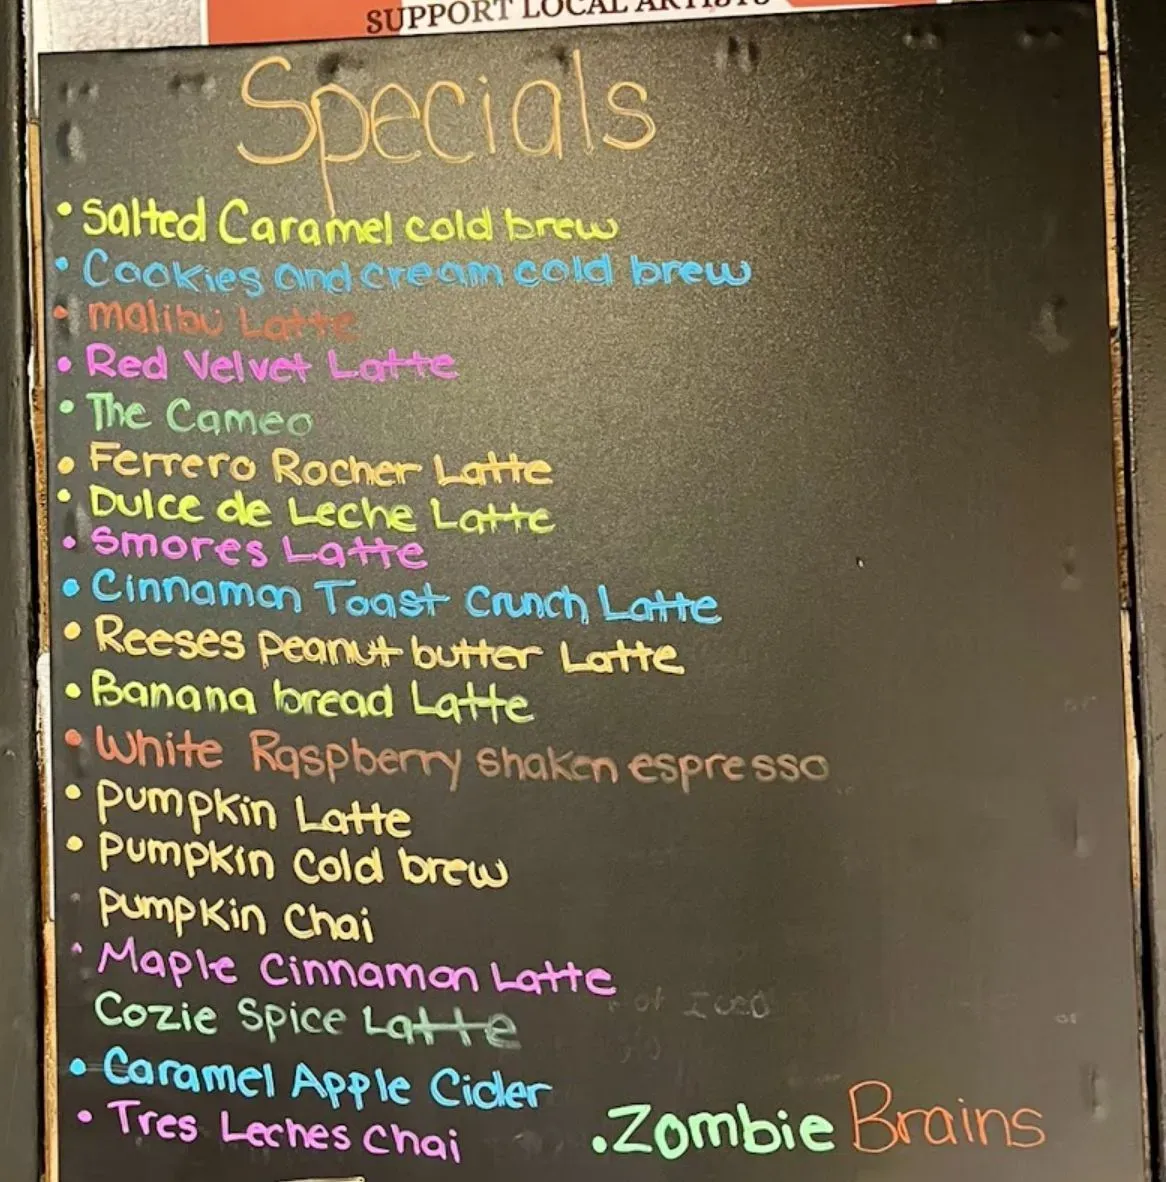 SUPPORT LOCAL ARTISTS
Specials
• Salted Caramel cold brew
• Cookies and cream cold brew
• malibu Latte
• Red Velvet Latte
• The Cameo
• Ferrero Rocher Latte
• Dulce de Leche Latte
• Smores Latte
• Cinnamon Toast Crunch Latte
• Reeses peanut butter Latte
• Banana bread Latte
• White Raspberry shaken espresso
• pumpkin Latte
• pumpkin cold brew
pumpkin chai
• Maple Cinnamon Latte
Cozie Spice Latte
• Caramel Apple Cider
• Tres Leches chai
• Zombie Brains